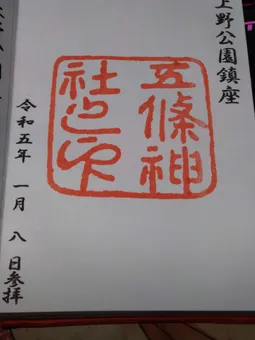 上野公園鎮座
五條神
社之印
令和五年 一月 八 日参拝